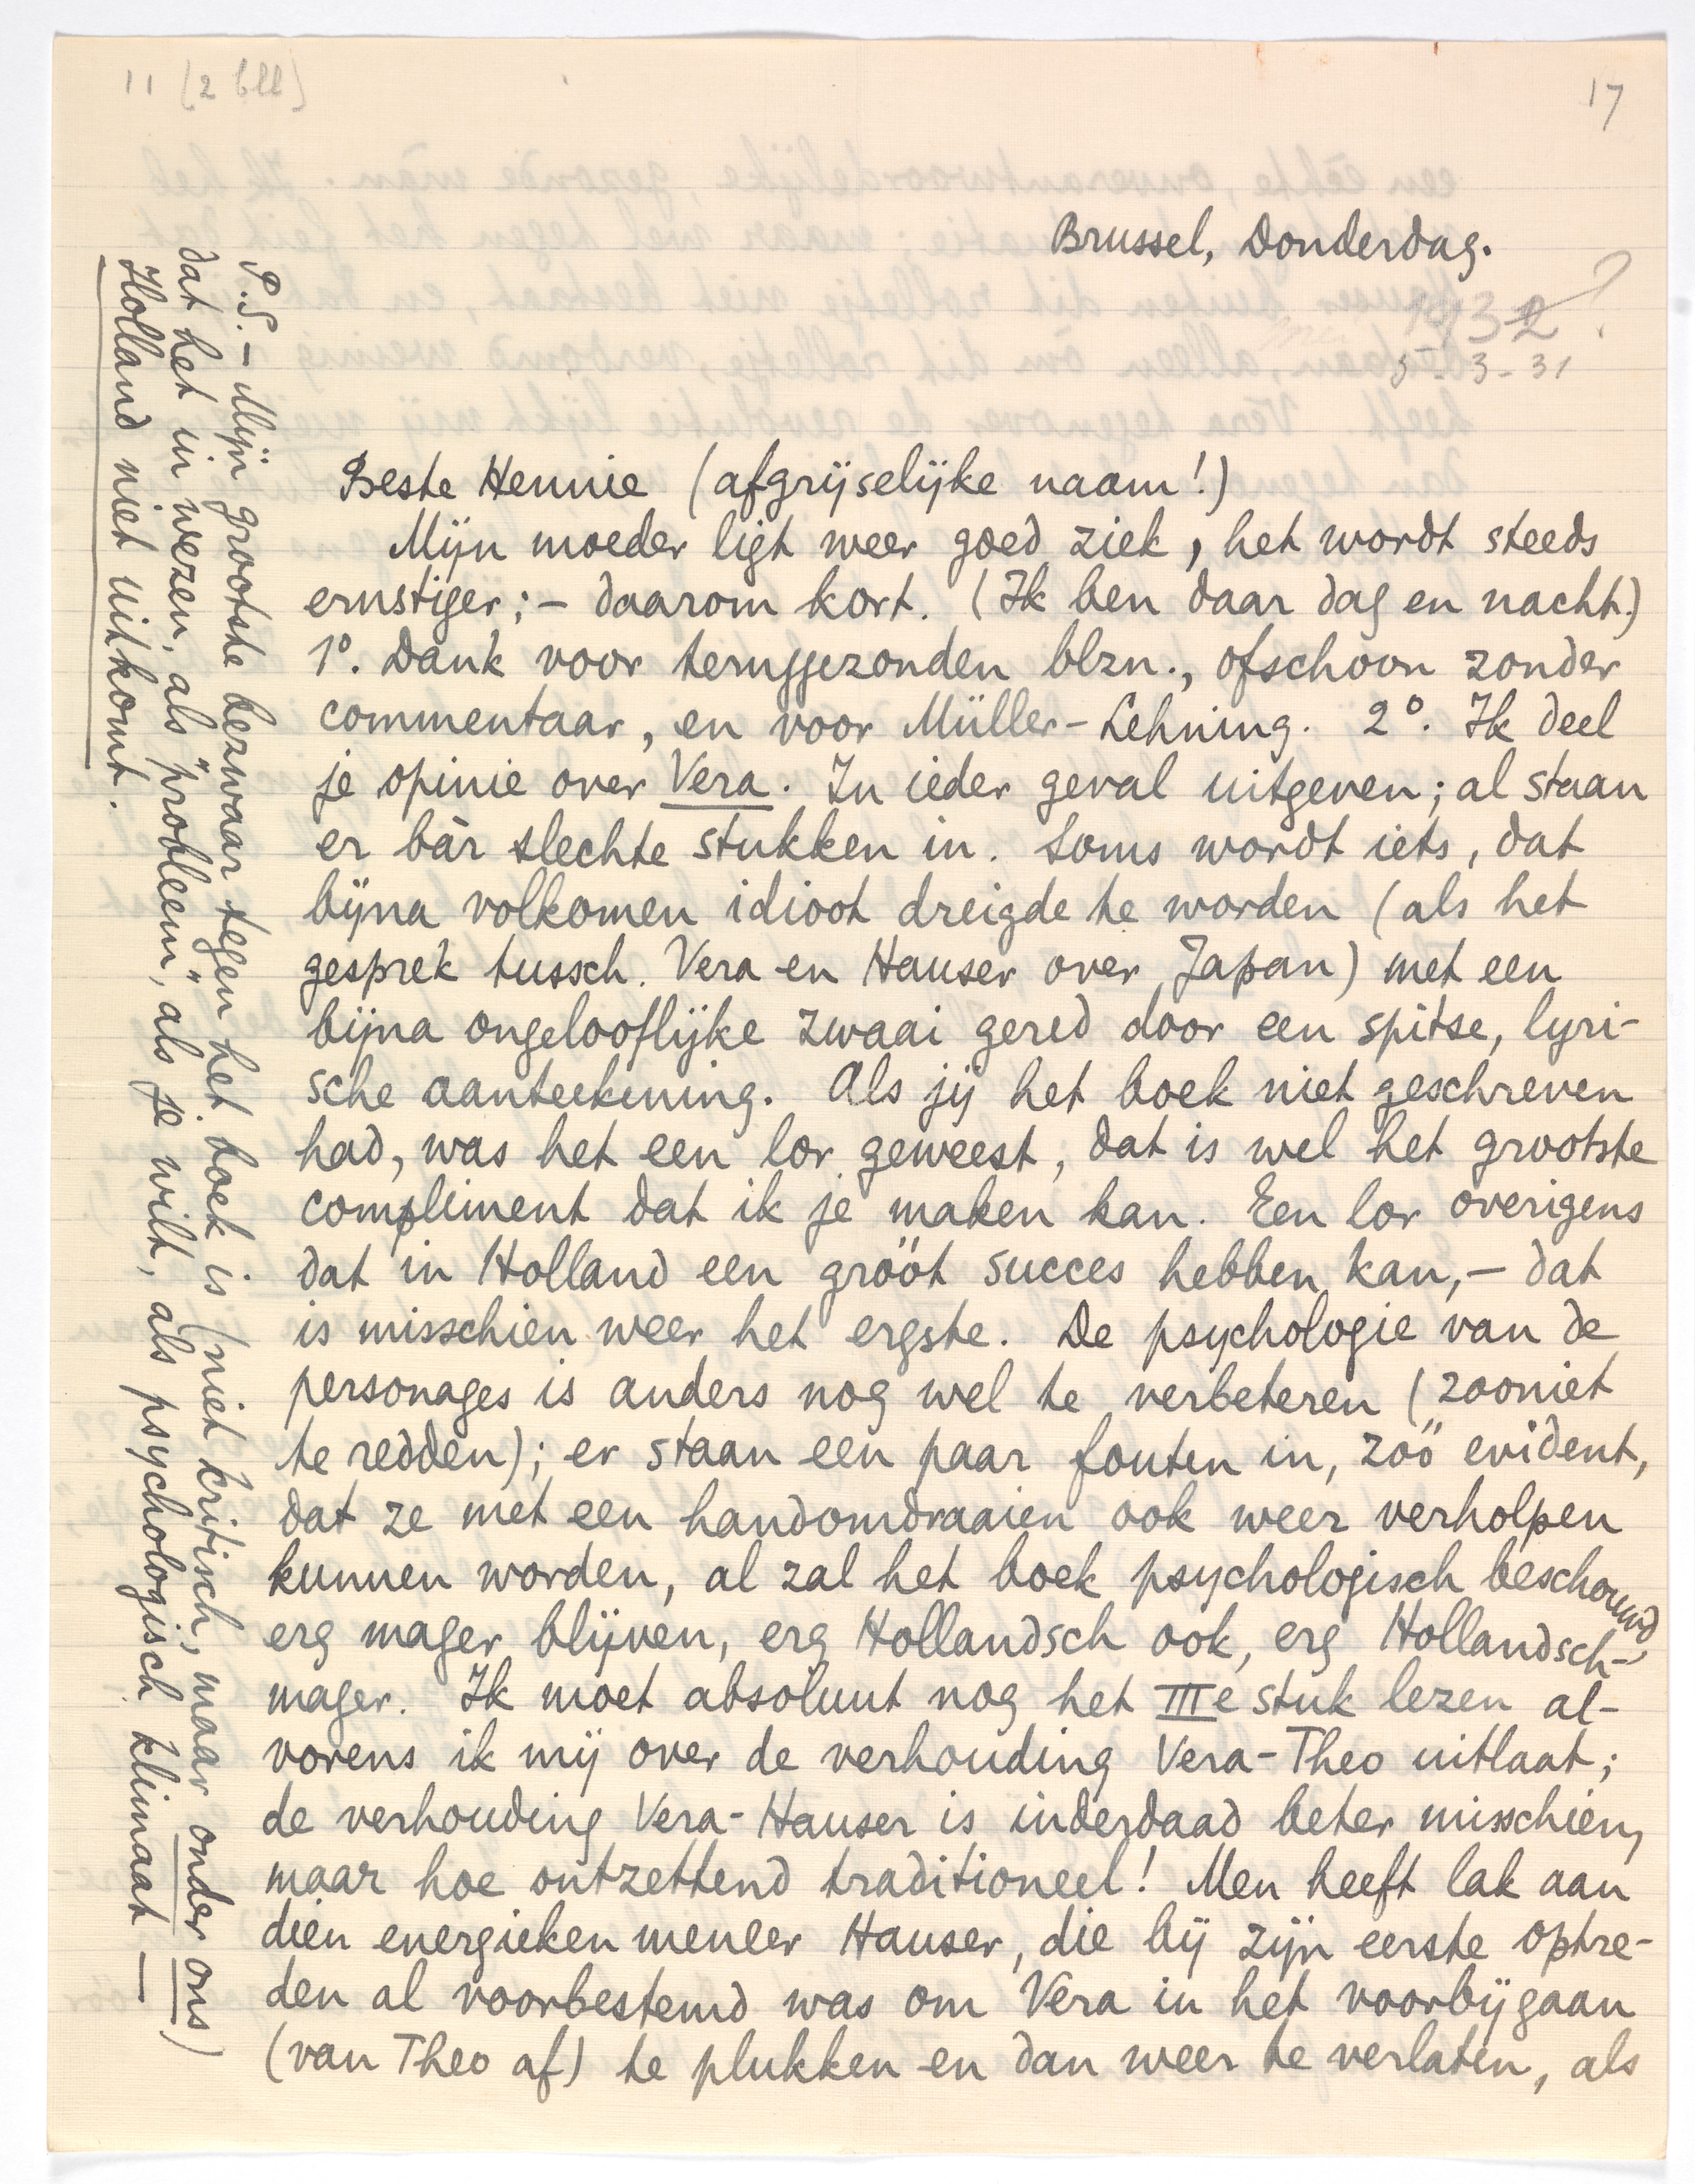 11 (2 bll)
17
Brussel, Donderdag.
1932?
5-3-31
Beste Hennie (afgrijselijke naam!)
Mijn moeder ligt weer goed ziek, het wordt steeds
ernstiger; – daarom kort. (Ik ben daar dag en nacht.)
1°. Dank voor teruggezonden blzn., ofschoon zonder
commentaar, en voor Müller-Lehning. 2°. Ik deel
je opinie over Vera. In ieder geval uitgeven; al staan
er bàr slechte stukken in. Soms wordt iets, dat
bijna volkomen idioot dreigde te worden (als het
gesprek tussch. Vera en Hauser over Japan) met een
bijna ongelooflijke zwaai gered door een spitse, lyri-
sche aanteekening. Als jij het boek niet geschreven
had, was het een lor geweest, dat is wel het grootste
compliment dat ik je maken kan. Een lor overigens
dat in Holland een gróót succes hebben kan, – dat
is misschien weer het ergste. De psychologie van de
personages is anders nog wel te verbeteren (zooniet
te redden); er staan een paar fouten in, zóó evident,
dat ze met een handomdraaien ook weer verholpen
kunnen worden, al zal het boek psychologisch beschouwd
erg mager blijven, erg Hollandsch ook, erg Hollandsch-
mager. Ik moet absoluut nog het IIIe stuk lezen al-
vorens ik mij over de verhouding Vera-Theo uitlaat;
de verhouding Vera-Hauser is inderdaad beter misschien,
maar hoe ontzettend traditioneel! Men heeft lak aan
dien energieken meneer Hauser, die bij zijn eerste optre-
den al voorbestemd was om Vera in het voorbijgaan
(van Theo af) te plukken en dan weer te verlaten, als
P.S. – Mijn grootste bezwaar tegen het boek is (niet kritisch, maar onder ons)
dat het in wezen, als "probleem", als je wilt, als psychologisch klimaat –
Holland niet uitkomt.